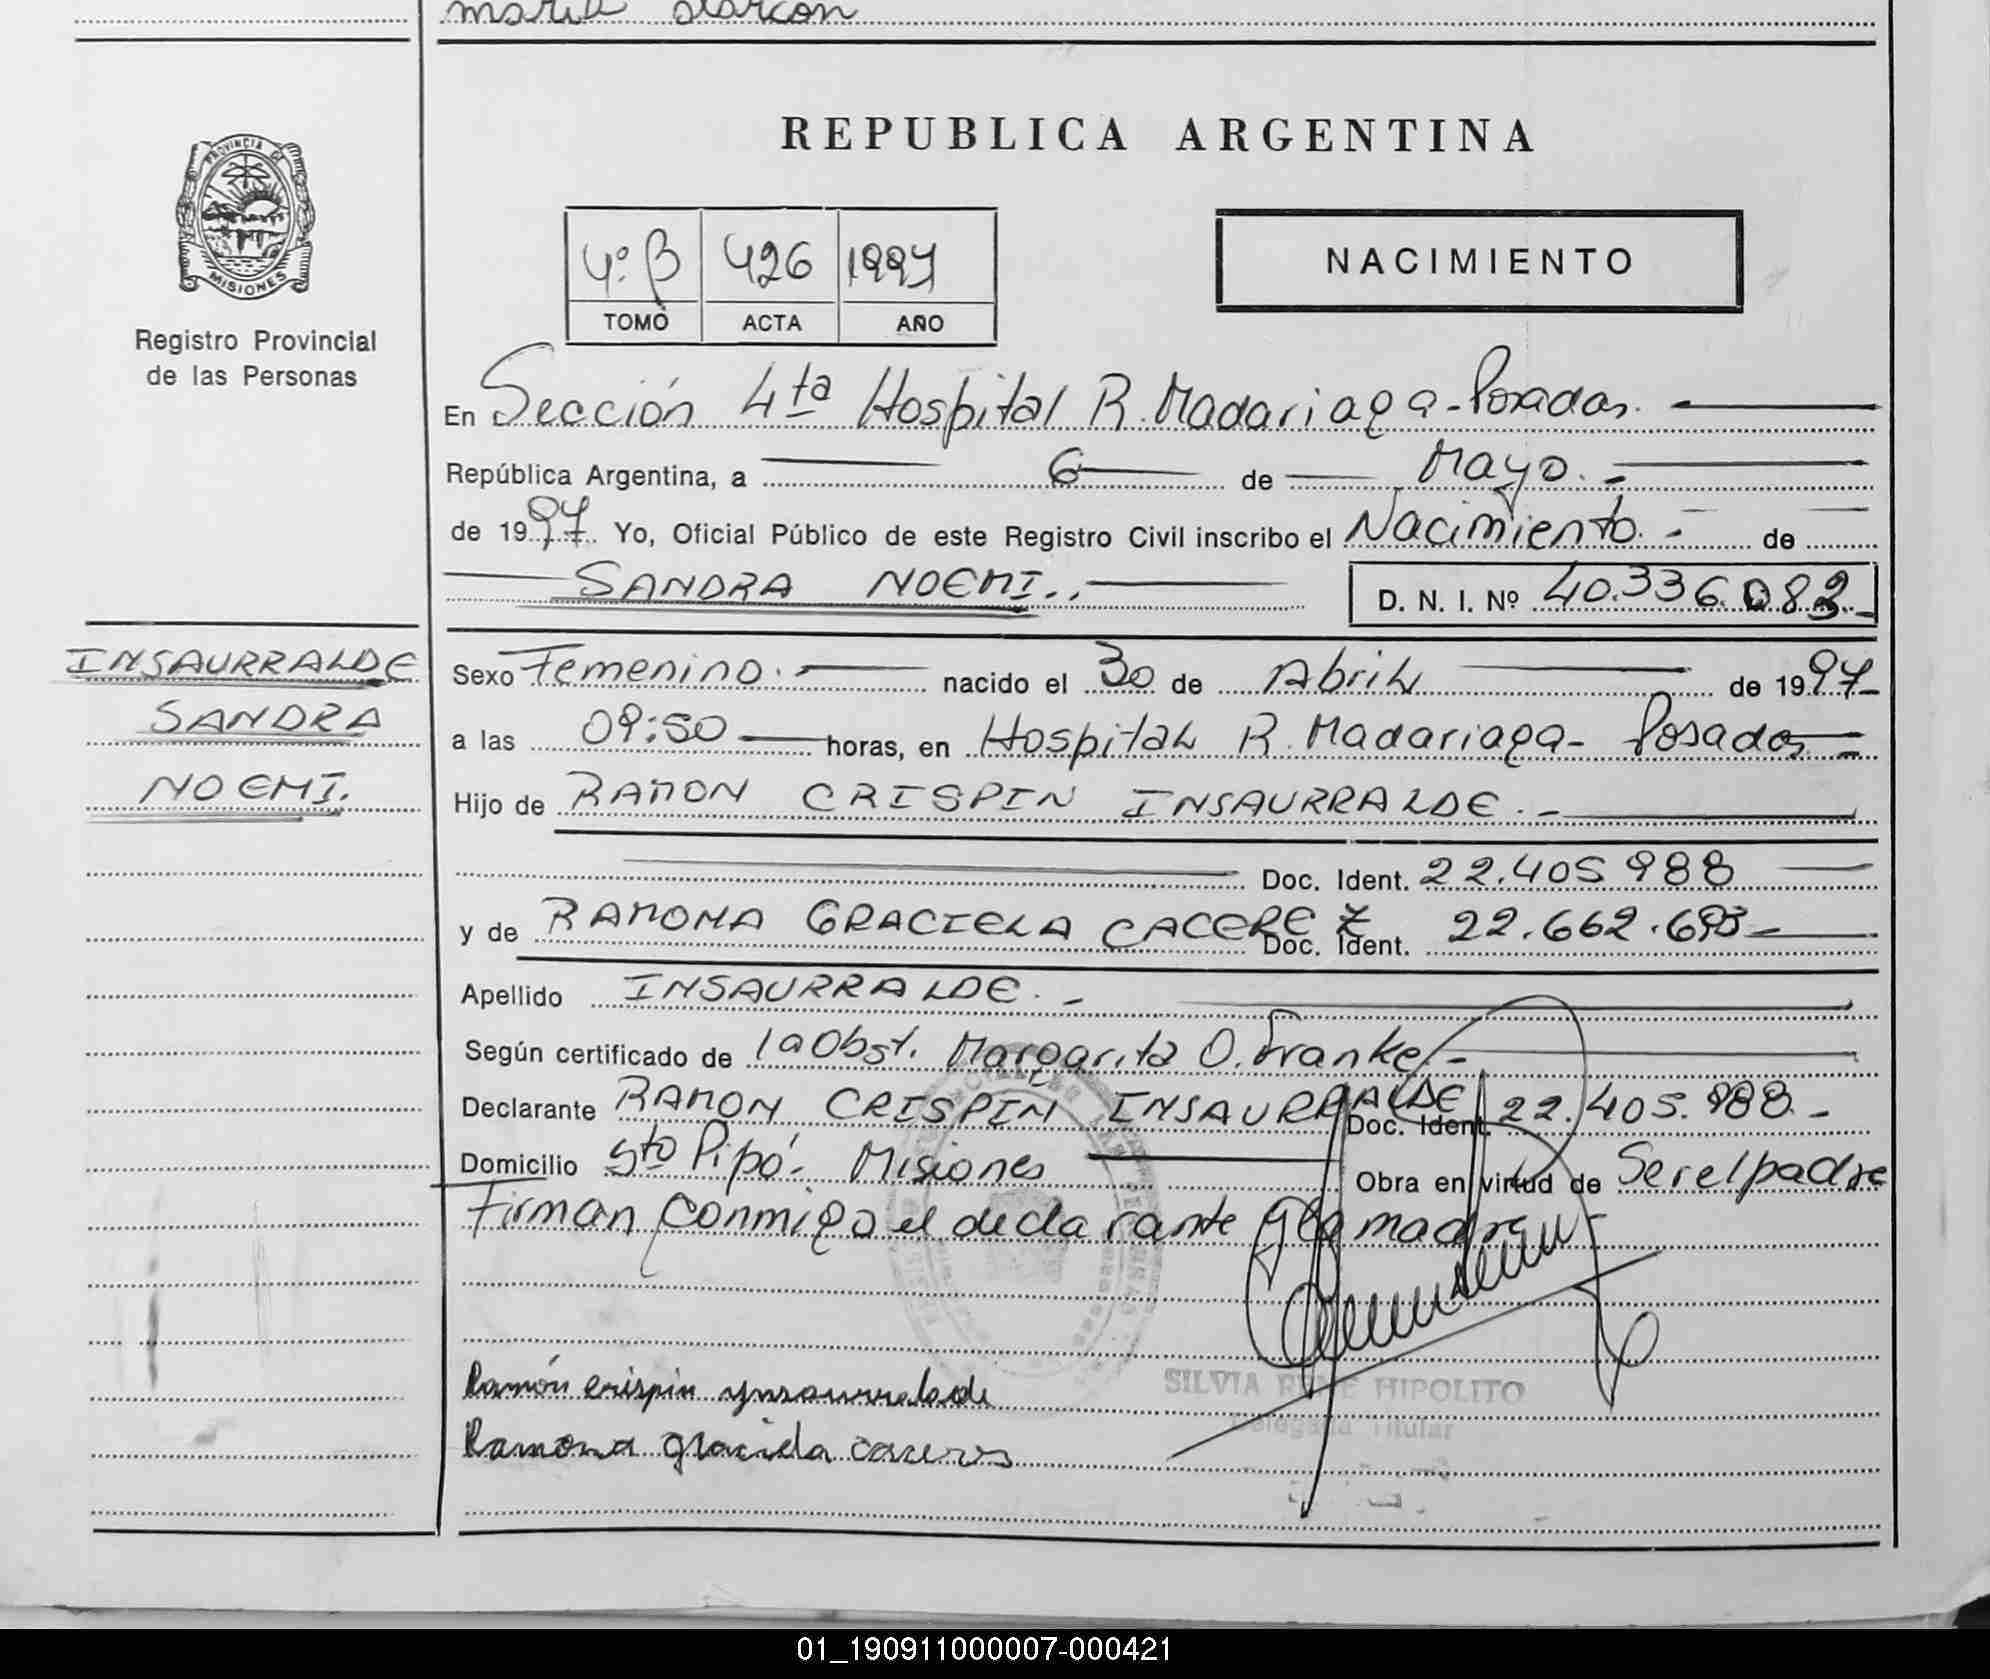 maria alarcon
PROVINCIA DE
MISIONES
Registro Provincial
de las Personas
REPUBLICA ARGENTINA
4º B 426 1997
TOMO ACTA AÑO
NACIMIENTO
En Sección 4ta Hospital R. Madariaga - Posadas.
República Argentina, a 6 de Mayo. -
de 1997. Yo, Oficial Público de este Registro Civil inscribo el Nacimiento. - de
SANDRA NOEMI.. D. N. I. Nº 40.336.083 -
INSAURRALDE
SANDRA
NOEMI.
Sexo Femenino. - nacido el 30 de Abril de 1997 -
a las 09:50 horas, en Hospital R. Madariaga - Posadas -
Hijo de RAMON CRISPIN INSAURRALDE. -
Doc. Ident. 22.405.988
y de RAMONA GRACIELA CACEREZ Doc. Ident. 22.662.693 -
Apellido INSAURRALDE. -
Según certificado de la Obst. Margarita O. Franke -
Declarante RAMON CRISPIN INSAURRALDE Doc. Ident. 22.405.988. -
Domicilio Sto Pipó. Misiones Obra en virtud de Ser el padre
Firman conmigo el declarante y la madre -
Ramón crispin ynsaurralde
Ramona graciela caceres
SILVIA RENE HIPOLITO
Delegada Titular
01_190911000007-000421